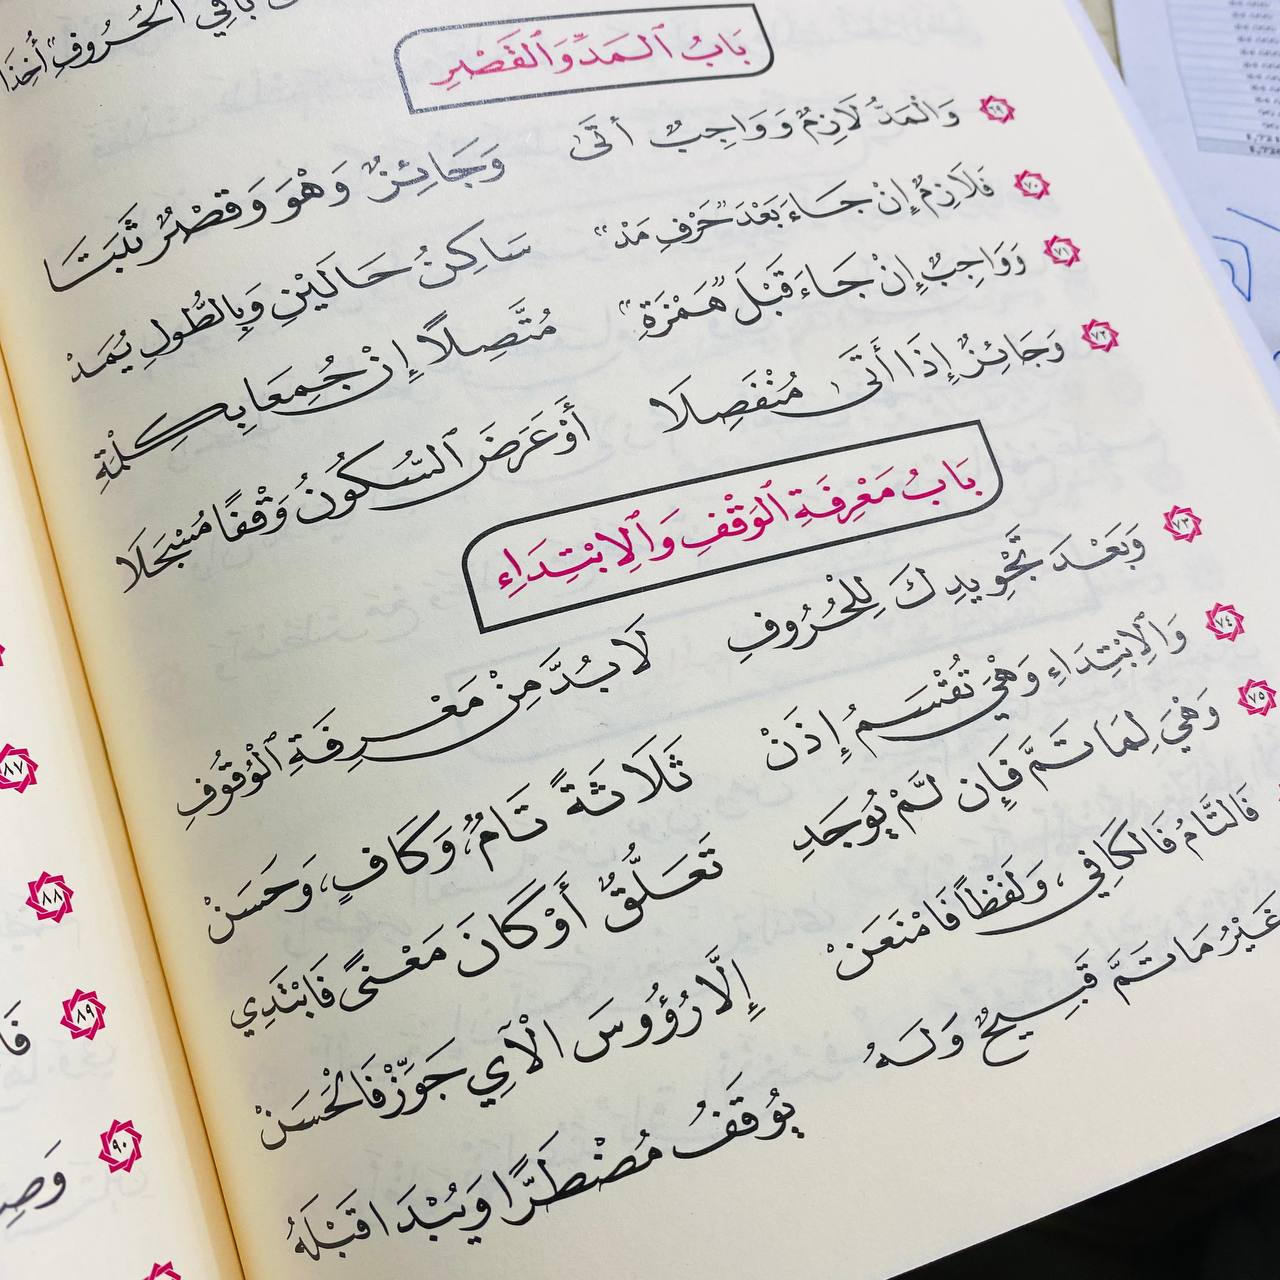 باقي الْحُرُوفِ أُخِذَا
بَابُ الْمَدِّ وَالْقَصْرِ
٦٩ وَالْمَدُّ لَازِمٌ وَوَاجِبٌ أَتَى وَجَائِزٌ وَهْوَ وَقَصْرٌ ثَبَتَا
٧٠ فَلَازِمٌ إِنْ جَاءَ بَعْدَ "حَرْفِ مَدْ" سَاكِنُ حَالَيْنِ وَبِالطُّولِ يُمَدْ
٧١ وَوَاجِبٌ إِنْ جَاءَ قَبْلَ "هَمْزَةِ" مُتَّصِلًا إِنْ جُمِعَا بِكِلْمَةِ
٧٢ وَجَائِزٌ إِذَا أَتَى مُنْفَصِلَا أَوْ عَرَضَ السُّكُونُ وَقْفًا مُسْجَلَا
بَابُ مَعْرِفَةِ الْوَقْفِ وَالِابْتِدَاءِ
٧٣ وَبَعْدَ تَجْوِيدِكَ لِلْحُرُوفِ لَا بُدَّ مِنْ مَعْرِفَةِ الْوُقُوفِ
٧٤ وَالِابْتِدَاءِ وَهْيَ تُقْسَمُ إِذَنْ ثَلَاثَةً تَامٌ، وَكَافٍ، وَحَسَنْ
٧٥ وَهْيَ لِمَا تَمَّ فَإِن لَّمْ يُوجَدِ تَعَلُّقٌ أَوْ كَانَ مَعْنًى فَابْتَدِي
فَالتَّامُ فَالْكَافِي، وَلَفْظًا فَامْنَعَنْ إِلَّا رُؤُوسَ الْآيِ جَوِّزْ فَالْحَسَنْ
غَيْرُ مَا تَمَّ قَبِيحٌ وَلَهُ يُوقَفُ مُضْطَرًّا وَيُبْدَا قَبْلَهُ
٨٧
٨٨
٨٩
٩٠